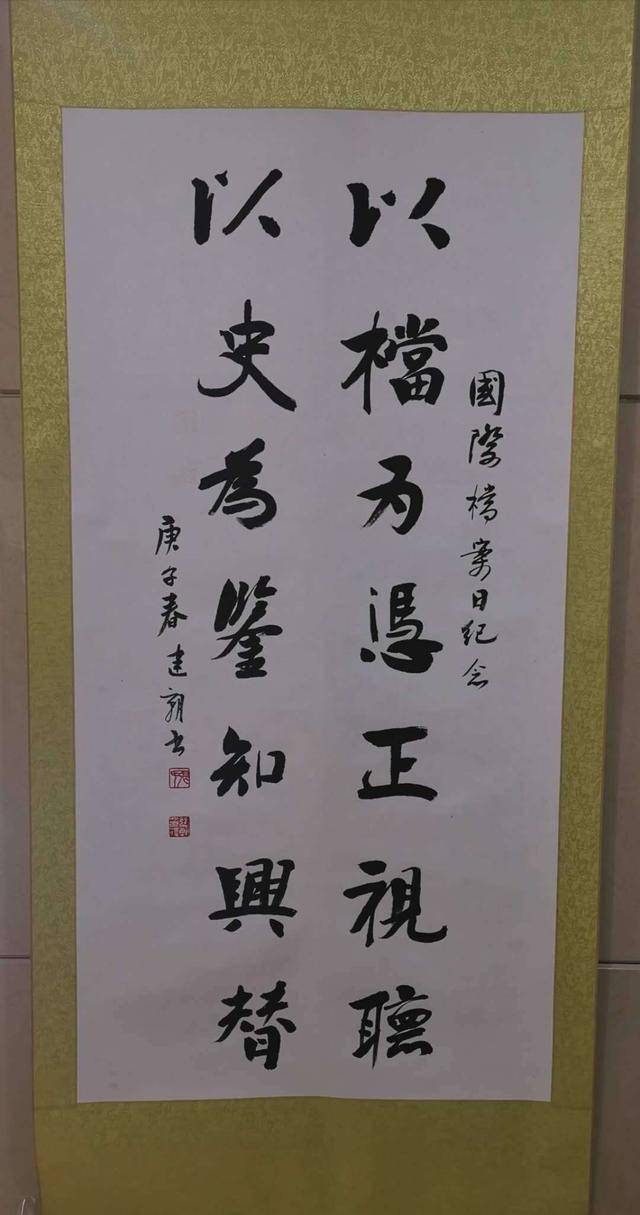 國際檔案日紀念
以檔为憑正視聽
以史為鑒知興替
庚子春建朝书